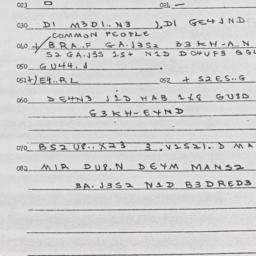 023 0 024 —
030 DI M3D1..N3 ),DI GE4JND
COMMON PEOPLE
040 + BRA..F GA.J3S2 B3KH-A..N
S2 GA.J3S 1S+ N1D DO4UF3
050 GU44.d
051 +)E4..RL 052 + S2ES..G
060 DE4N3 J1D HAB 1X8 GU8D
G3KH-E4ND
070 BS2U8..X23 3.V1S21..D MA
080 MIR DU8.N DE4M MANS2
BA.J3S2 N1D B3DRED3